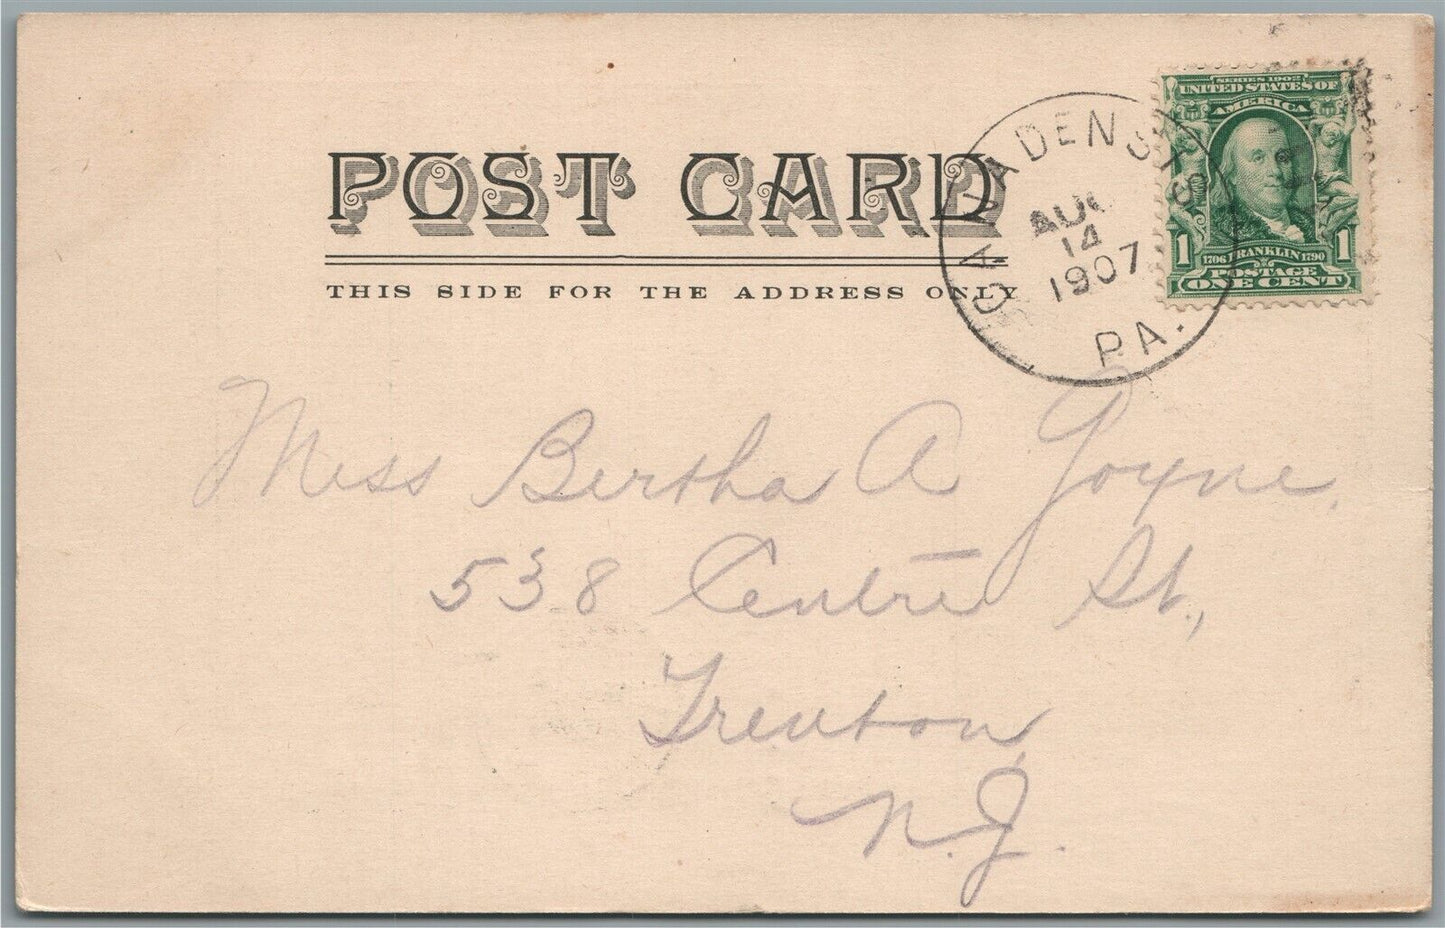 POST CARD
THIS SIDE FOR THE ADDRESS ONLY
CANADENSIS
AUG
14
1907
PA.
SERIES 1902
UNITED STATES OF
AMERICA
1 1
1706 FRANKLIN 1790
POSTAGE
ONE CENT
Miss Bertha A Goyne,
538 Centre St.,
Trenton,
N.J.